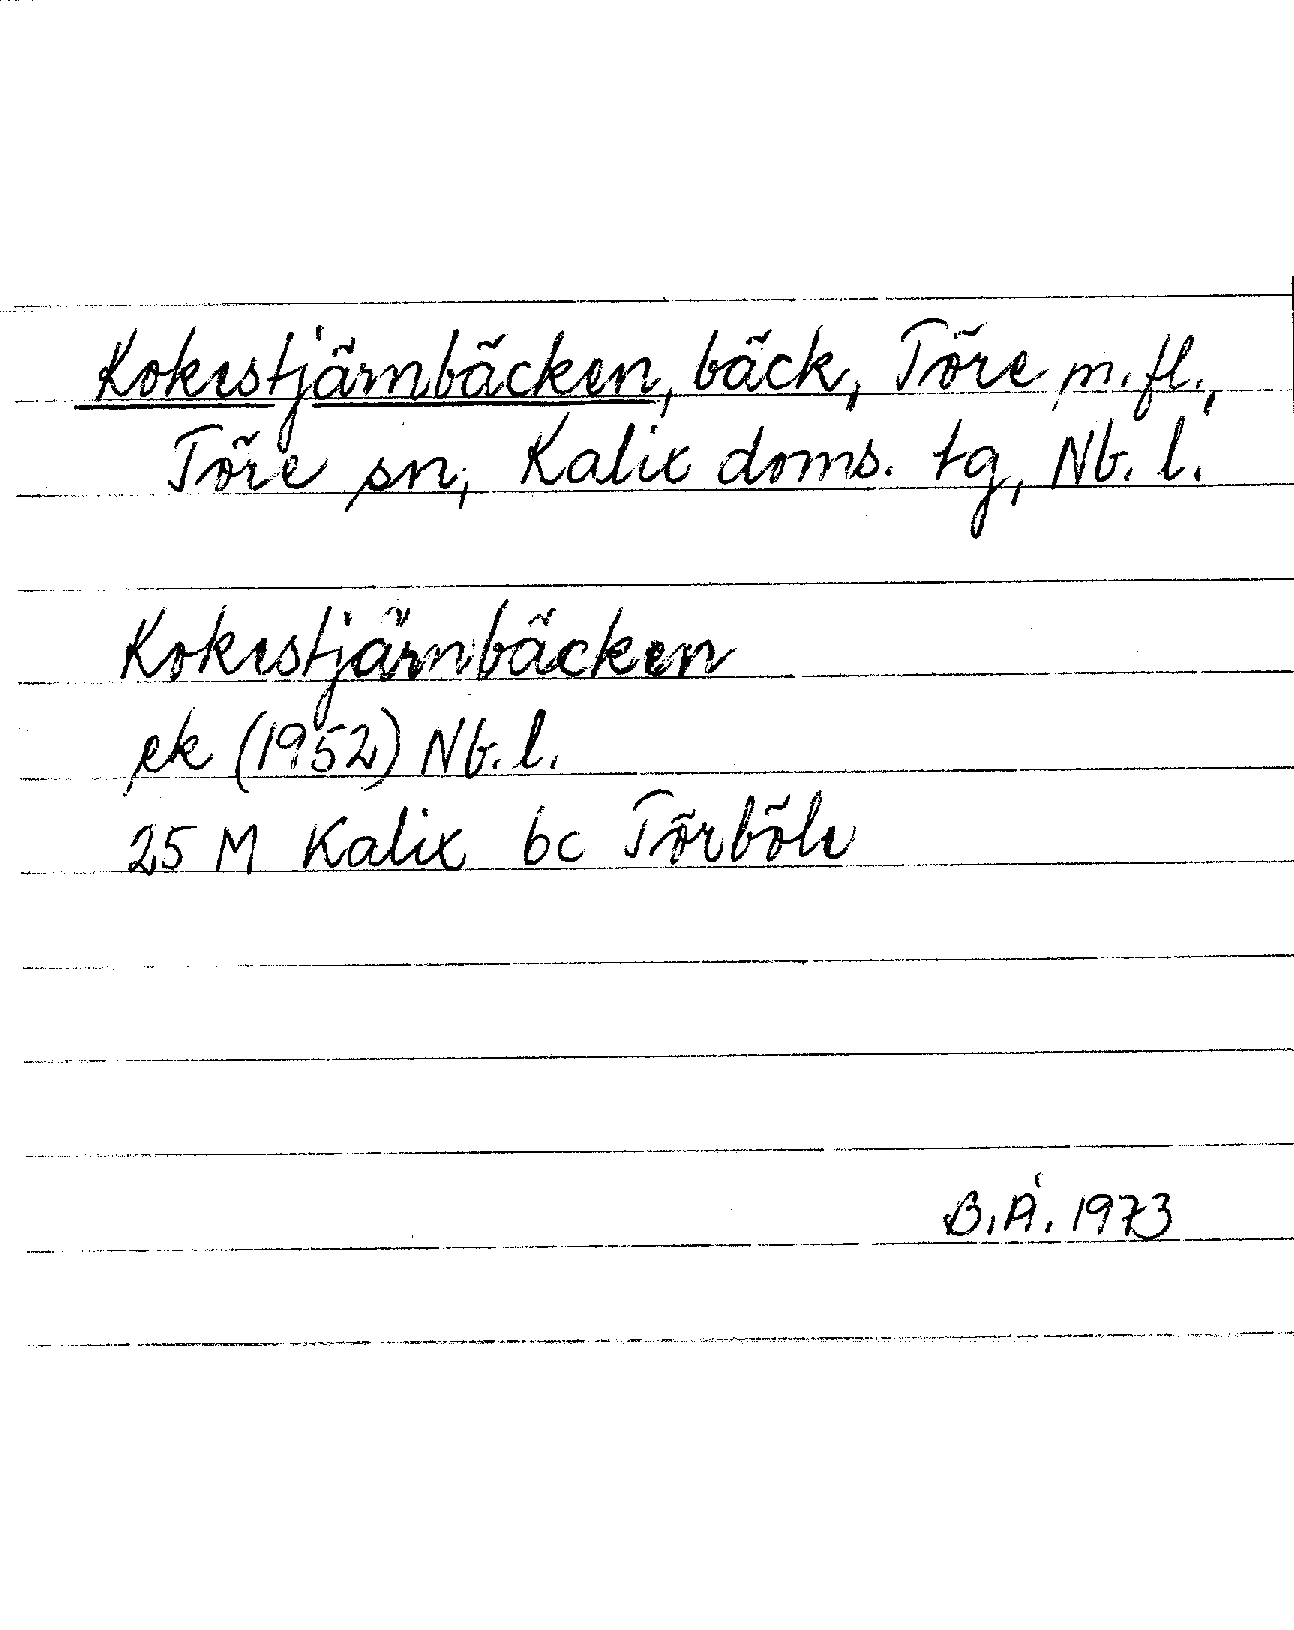 Kokestjärnbäcken, bäck, Töre m.fl.,
Töre sn, Kalix doms. tg, Nb. l.
Kokestjärnbäcken
ek (1952) Nb. l.
25 M Kalix bc Törböle
B.Å. 1973